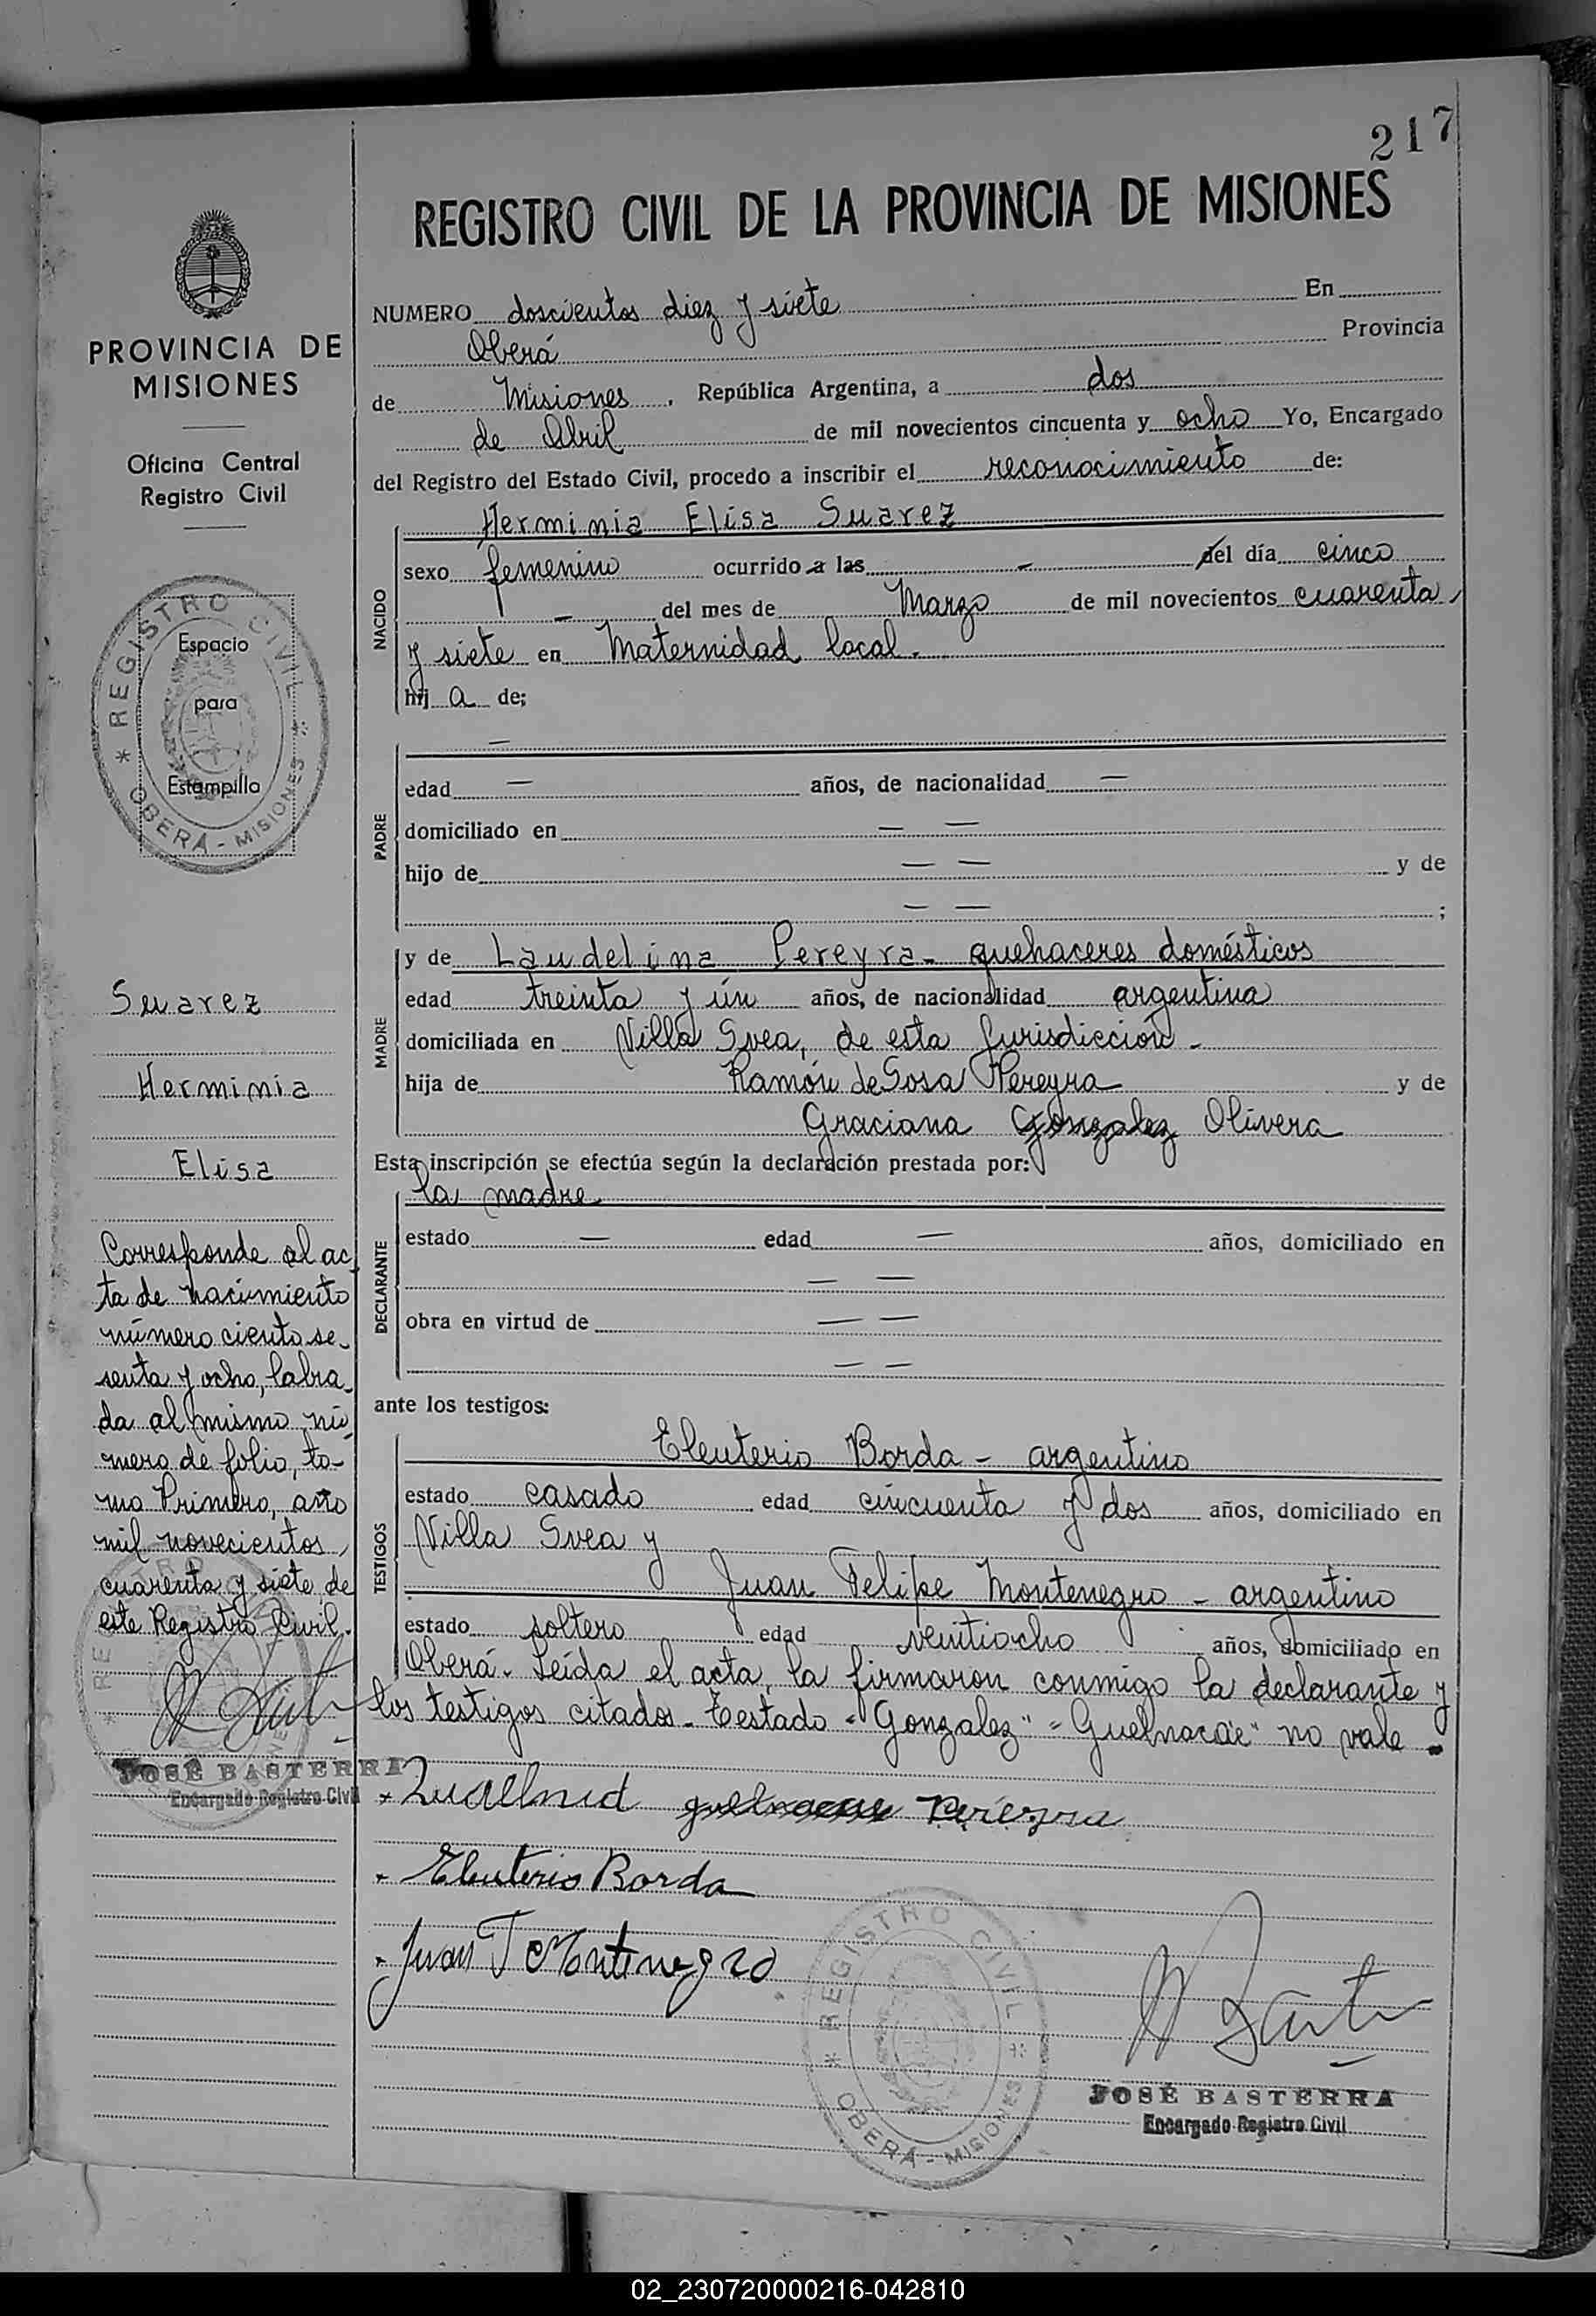 217
REGISTRO CIVIL DE LA PROVINCIA DE MISIONES
PROVINCIA DE
MISIONES
Oficina Central
Registro Civil
REGISTRO CIVIL
OBERÁ - MISIONES
Espacio
para
Estampilla
Suarez
Herminia
Elisa
Corresponde al ac-
ta de nacimiento
número ciento se-
senta y ocho, labra-
da al mismo nú-
mero de folio, to-
mo Primero, año
mil novecientos
cuarenta y siete de
este Registro Civil.
JOSÉ BASTERRA
Encargado Registro Civil
NUMERO doscientos diez y siete En
Oberá Provincia
de Misiones, República Argentina, a dos
de Abril de mil novecientos cincuenta y ocho Yo, Encargado
del Registro del Estado Civil, procedo a inscribir el reconocimiento de:
NACIDO
Herminia Elisa Suarez
sexo femenino ocurrido a las - del día cinco
- del mes de Marzo de mil novecientos cuarenta
y siete en Maternidad local.
hij a de;
PADRE
—
edad — años, de nacionalidad —
domiciliado en — —
hijo de — — y de
— — ;
MADRE
y de Laudelina Pereyra - quehaceres domésticos
edad treinta y ún años, de nacionalidad argentina
domiciliada en Villa Svea, de esta Jurisdicción -
hija de Ramón de Sosa Pereyra y de
Graciana Gonzalez Olivera
Esta inscripción se efectúa según la declaración prestada por:
DECLARANTE
la madre
estado — edad — años, domiciliado en
— —
obra en virtud de — —
— —
ante los testigos:
TESTIGOS
Eleuterio Borda - argentino
estado casado edad cincuenta y dos años, domiciliado en
Villa Svea y
Juan Felipe Montenegro - argentino
estado soltero edad veintiocho años, domiciliado en
Oberá. Leída el acta, la firmaron conmigo la declarante y
los testigos citados. Testado "Gonzalez" no vale -
Pereyra
Eleuterio Borda
Juan F Montenegro
REGISTRO CIVIL
OBERÁ - MISIONES
JOSÉ BASTERRA
Encargado Registro Civil
02_230720000216-042810